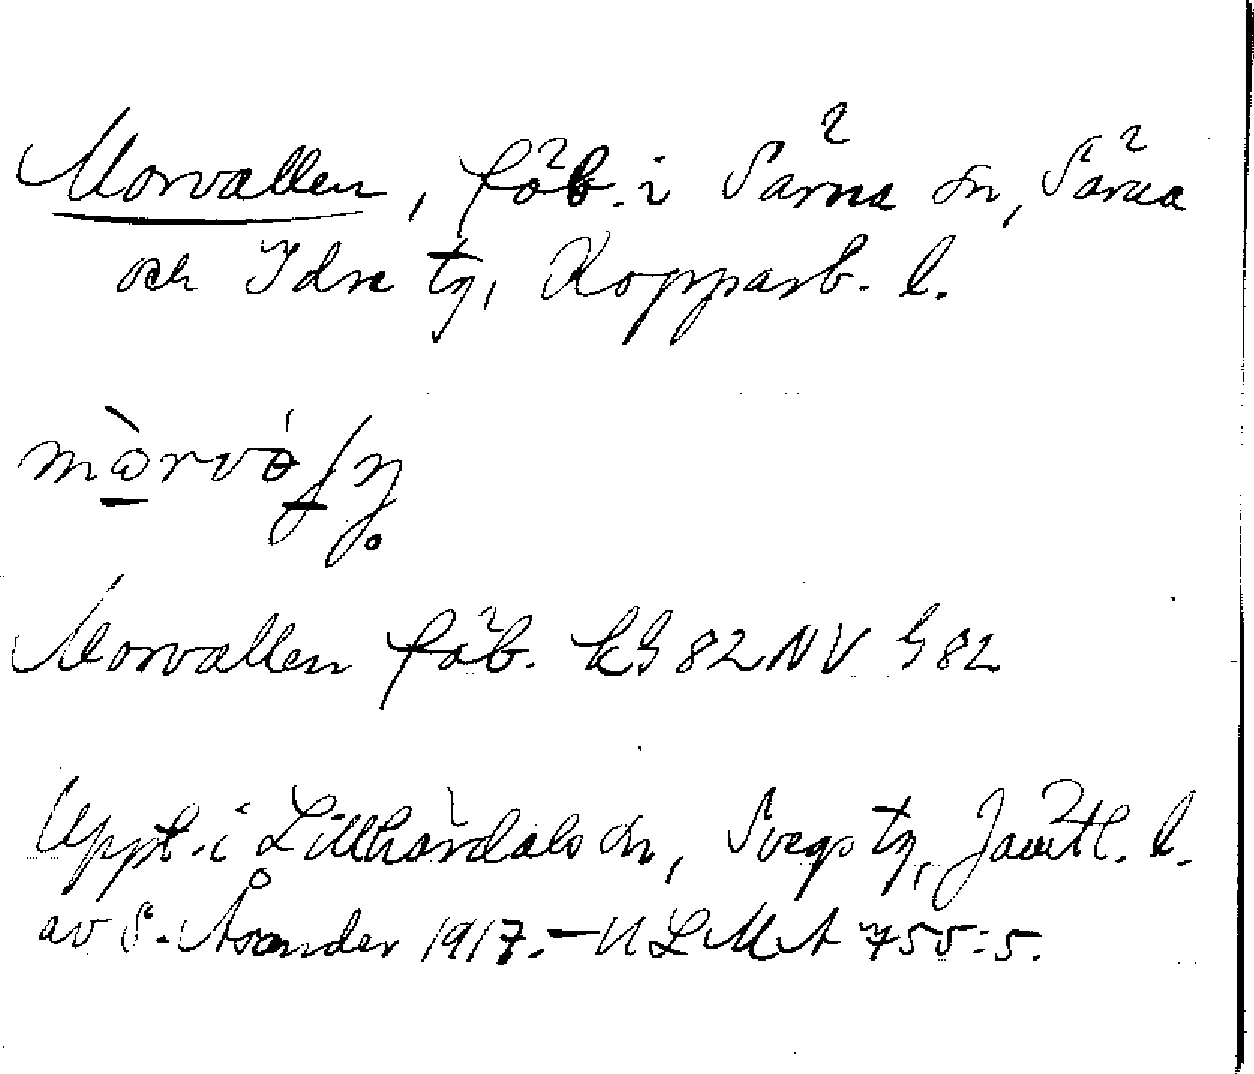 Morvallen, fäb. i Särna sn, Särna
och Idre tg, Kopparb. l.
Morvallen fäb. kg 82 NV G 82
Uppt. i Lillhärdals sn, Svegs tg, Jämtl. l.
av S. Åsander 1917. – ULMA 755:5.